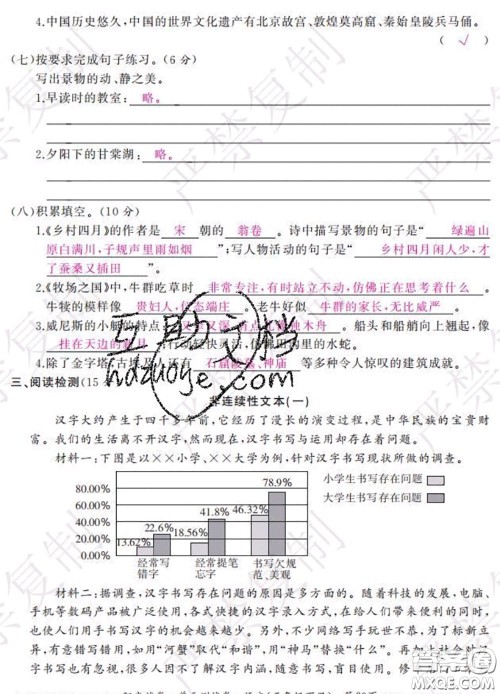 4.中国历史悠久,中国的世界文化遗产有北京故宫、敦煌莫高窟、秦始皇陵兵马俑。
( √ )
(七)按要求完成句子练习。(6分)
写出景物的动、静之美。
1.早读时的教室: 略。
2.夕阳下的甘棠湖: 略。
(八)积累填空。(10分)
1.《乡村四月》的作者是 宋 朝的 翁卷 。诗中描写景物的句子是“ 绿遍山
原白满川,子规声里雨如烟 ”;写人物活动的句子是“ 乡村四月闲人少,才
了蚕桑又插田 ”。
2.《牧场之国》中,牛群吃草时 非常专注,有时站立不动,仿佛正在思考着什么 。
牛犊的模样像 贵妇人,仪态端庄 。老牛好似 牛群的家长,无比威严 。
3.威尼斯的小艇的特点: 独木舟 。船头和船艄向上翘起,像
挂在天边的 仿佛田沟里的水蛇。
4.除了金字塔 还有 神庙 等多种令人惊叹的建筑成就。
三、阅读检测(15
非连续性文本(一)
汉字大约产生于四千多年前,它经历了漫长的演变过程,是中华民族的宝贵财
富。我们的生活离不开汉字,然而现在,汉字书写与运用却存在着问题。
材料一:下图是以××小学、××大学为例,针对汉字书写现状所做的调查。
80.00%
70.00%
60.00%
50.00%
40.00%
30.00%
20.00%
10.00%
0.00%
13.62%
22.6%
18.56%
41.8%
46.32%
78.9%
小学生书写存在问题
大学生书写存在问题
经常写
错字
经常提笔
忘字
书写欠规
范、美观
材料二:据调查,汉字书写存在问题的原因是多方面的。随着科技的发展,电脑、
手机等数码产品被广泛使用,各式快捷的汉字录入方式,在给人们带来便利的同时,
也使人们用手书写汉字的机会越来越少。另外,不少网络写手玩世不恭,为了标新立
异,有意错写错用,如用“河蟹”取代“和谐”,用“神马”替换“什么”。再加上社会对汉字
书写的重视也有所忽视,很多人因不了解汉字内涵,随意书写,盲目使用。
互助文档
hdzuoye.com
严禁复制